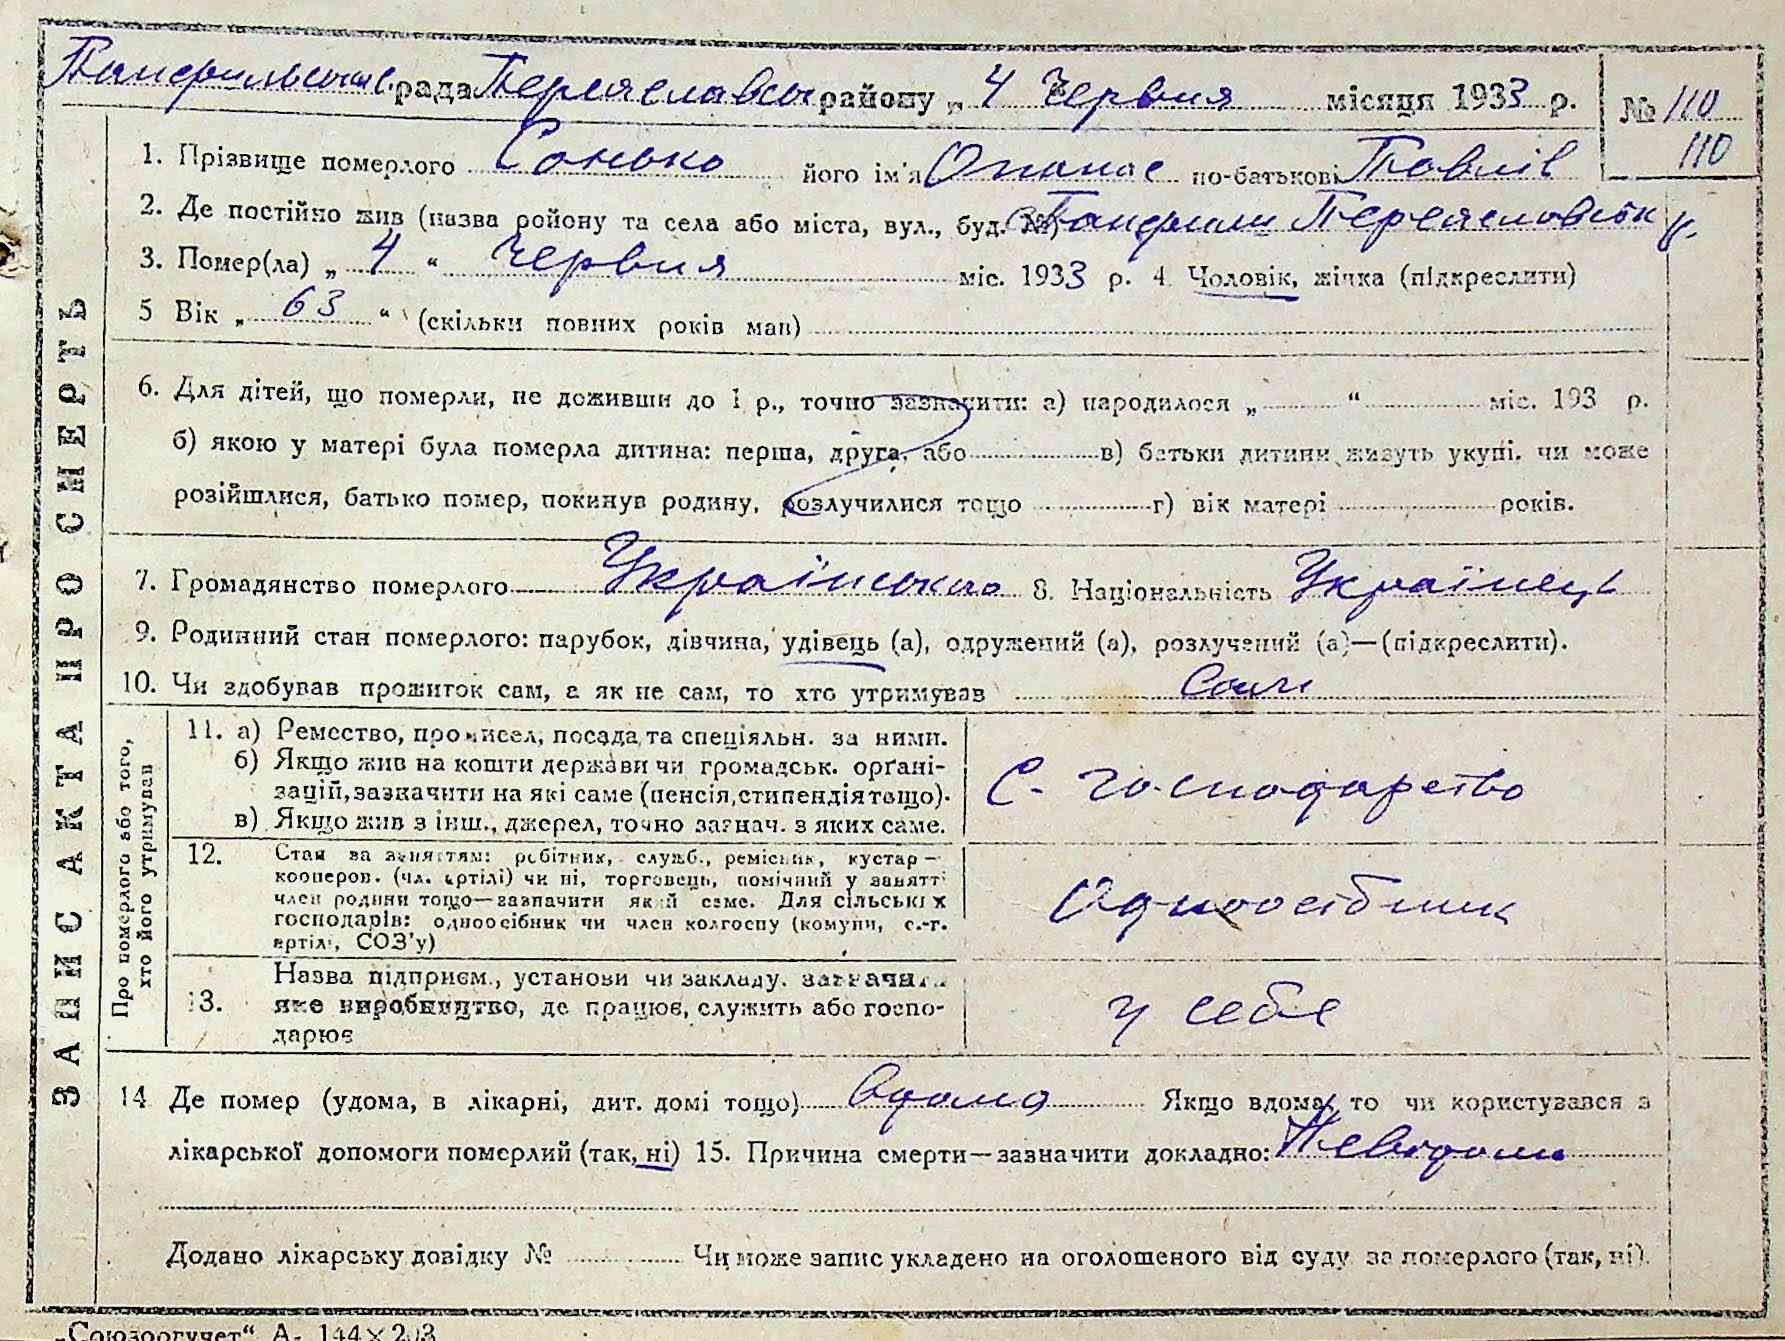 Панфильська рада Переяславськ району „ 4 Червня місяця 1933 р. № 110
110
1. Прізвище померлого Сонько його ім'я Опанас по-батькові Павлів
2. Де постійно жив (назва ройону та села або міста, вул., буд. №) с. Панфили Переяславськ р.
3. Помер(ла) „ 4 “ Червня міс. 1933 р. 4 Чоловік, жінка (підкреслити)
5 Вік „ 63 “ (скільки повних років мав)
6. Для дітей, що померли, не доживши до 1 р., точно зазначити: а) народилося „ “ міс. 193 р.
б) якою у матері була померла дитина: перша, друга, або в) батьки дитини живуть укупі. чи може
розійшлися, батько помер, покинув родину, розлучилися тощо г) вік матері років.
7. Громадянство померлого Українська 8. Національність Українець
9. Родинний стан померлого: парубок, дівчина, удівець (а), одружений (а), розлучений (а)—(підкреслити).
10. Чи здобував прожиток сам, а як не сам, то хто утримував Сам
ЗАПИС АКТА ПРО СМЕРТЬ
Про померлого або того,
хто його утримував
11. а) Ремество, промисел, посада та спеціяльн. за ними.
б) Якщо жив на кошти держави чи громадськ. органі-
зацій, зазначити на які саме (пенсія, стипендія тощо).
в) Якщо жив з інш., джерел, точно зазнач. з яких саме.
С- господарство
12. Стан за заняттям: робітник, служб., ремісник, кустар—
кооперов. (чл. артілі) чи ні, торговець, помічний у занятті
член родини тощо—зазначити який саме. Для сільських
господарів: одноосібник чи член колгоспу (комуни, с.-г.
артілі, СОЗ'у)
Одноосібник
13. Назва підприєм., установи чи закладу. зазначити
яке виробництво, де працює, служить або госпо-
дарює
у себе
14 Де помер (удома, в лікарні, дит. домі тощо) Вдома Якщо вдома, то чи користувався з
лікарської допомоги померлий (так, ні) 15. Причина смерти—зазначити докладно: Невідома
Додано лікарську довідку № Чи може запис укладено на оголошеного від суду за померлого (так, ні).
„Союзоргучет“ А- 144×203